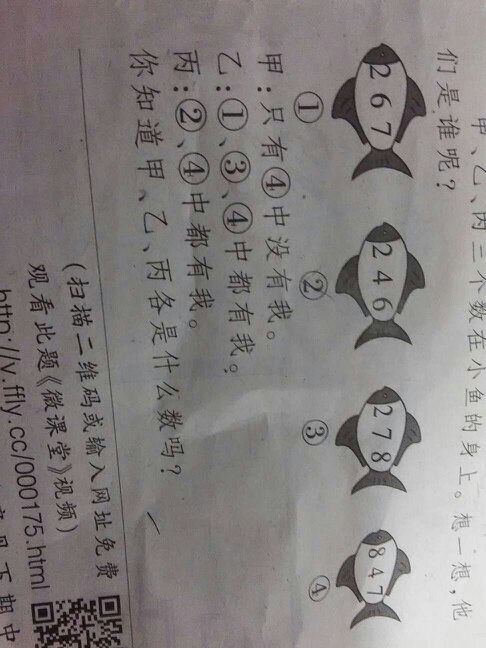 甲、乙、丙三个数在小鱼的身上。想一想,他
们是谁呢?
2 6 7
2 4 6
2 7 8
8 4 7
① ② ③ ④
甲:只有④中没有我。
乙:①、③、④中都有我。
丙:②、④中都有我。
你知道甲、乙、丙各是什么数吗?
(扫描二维码或输入网址免费
观看此题《微课堂》视频)
http://v.ffly.cc/000175.html